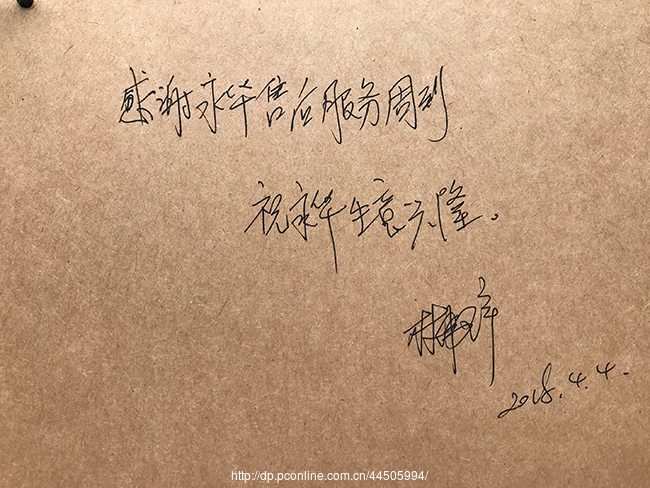 感谢永华售后服务周到
祝永华生意兴隆。
2018.4.4.
http://dp.pconline.com.cn/44505994/